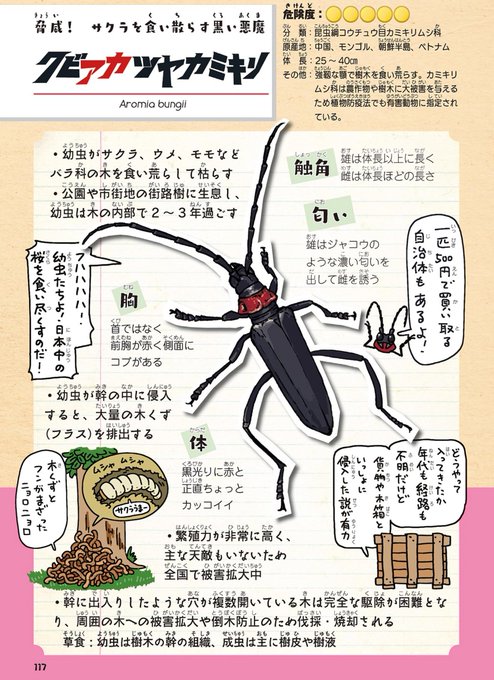 脅威！ サクラを食い散らす黒い悪魔
クビアカツヤカミキリ
Aromia bungii
危険度：
分 類：昆虫綱コウチュウ目カミキリムシ科
原産地：中国、モンゴル、朝鮮半島、ベトナム
体 長：25～40㎝
その他：強靱な顎で樹木を食い荒らす。カミキリ
ムシ科は農作物や樹木に大被害を与える
ため植物防疫法でも有害動物に指定され
ている。
・幼虫がサクラ、ウメ、モモなど
バラ科の木を食い荒らして枯らす
・公園や市街地の街路樹に生息し、
幼虫は木の内部で２～３年過ごす
触角
雄は体長以上に長く
雌は体長ほどの長さ
匂い
雄はジャコウの
ような濃い匂いを
出して雌を誘う
一匹500円で買い取る
自治体もあるよ！
フハハハハ！
幼虫たちよ！日本中の
桜を食い尽くすのだ！
胸
首ではなく
前胸が赤く側面に
コブがある
・幼虫が幹の中に侵入
すると、大量の木くず
(フラス)を排出する
体
黒光りに赤と
正直ちょっと
カッコイイ
ムシャ ムシャ
サクラうまー
木くずと
フンがまざった
ニョロニョロ
どうやって
入ってきたか
年代も経路も
不明だけど
貨物や木箱と
いっしょに
侵入した説が有力
・繁殖力が非常に高く、
主な天敵もいないため
全国で被害拡大中
・幹に出入りしたような穴が複数開いている木は完全な駆除が困難とな
り、周囲の木への被害拡大や倒木防止のため伐採・焼却される
草食：幼虫は樹木の幹の組織、成虫は主に樹皮や樹液
117